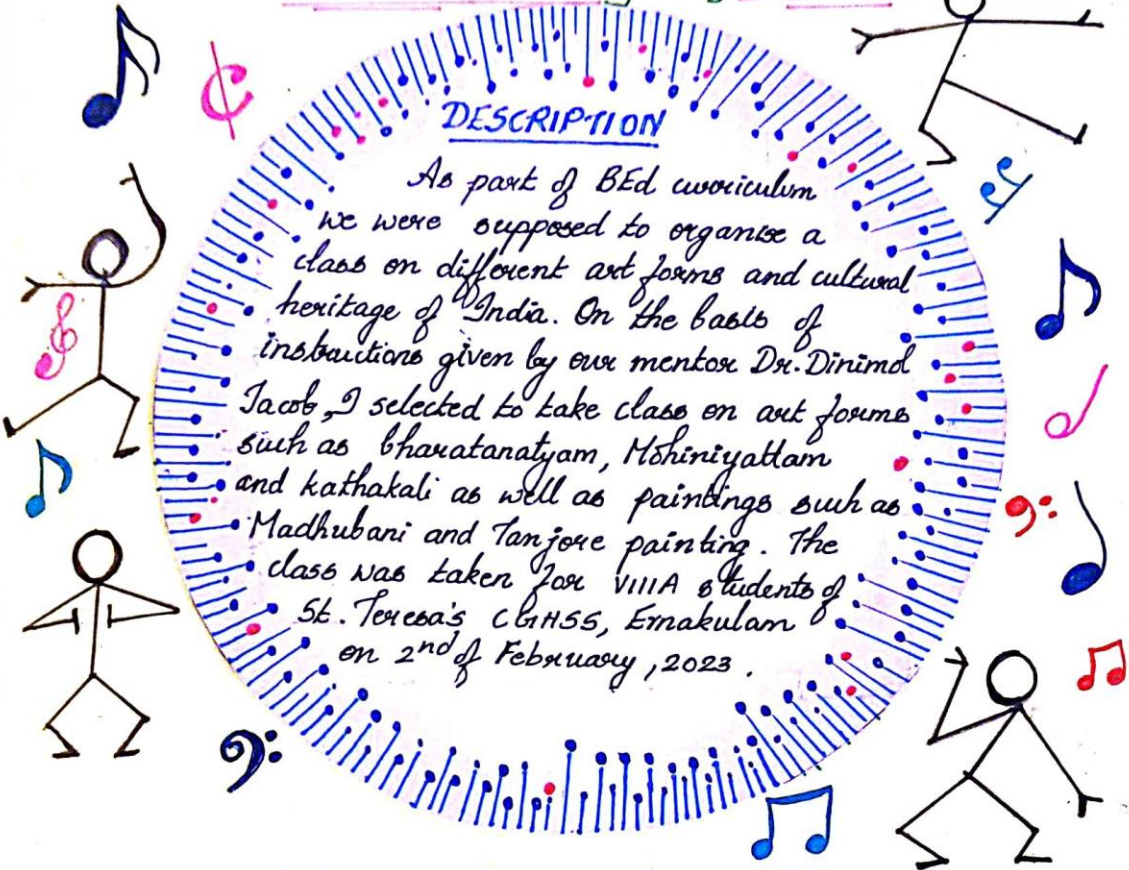 DESCRIPTION
As part of BEd curriculum
we were supposed to organise a
class on different art forms and cultural
heritage of India. On the basis of
instructions given by our mentor Dr. Dinimol
Jacob, I selected to take class on art forms
such as bharatanatyam, Mohiniyattam
and kathakali as well as paintings such as
Madhubani and Tanjore painting. The
class was taken for VIIIA students of
St. Teresa's CGHSS, Ernakulam
on 2nd of February, 2023.